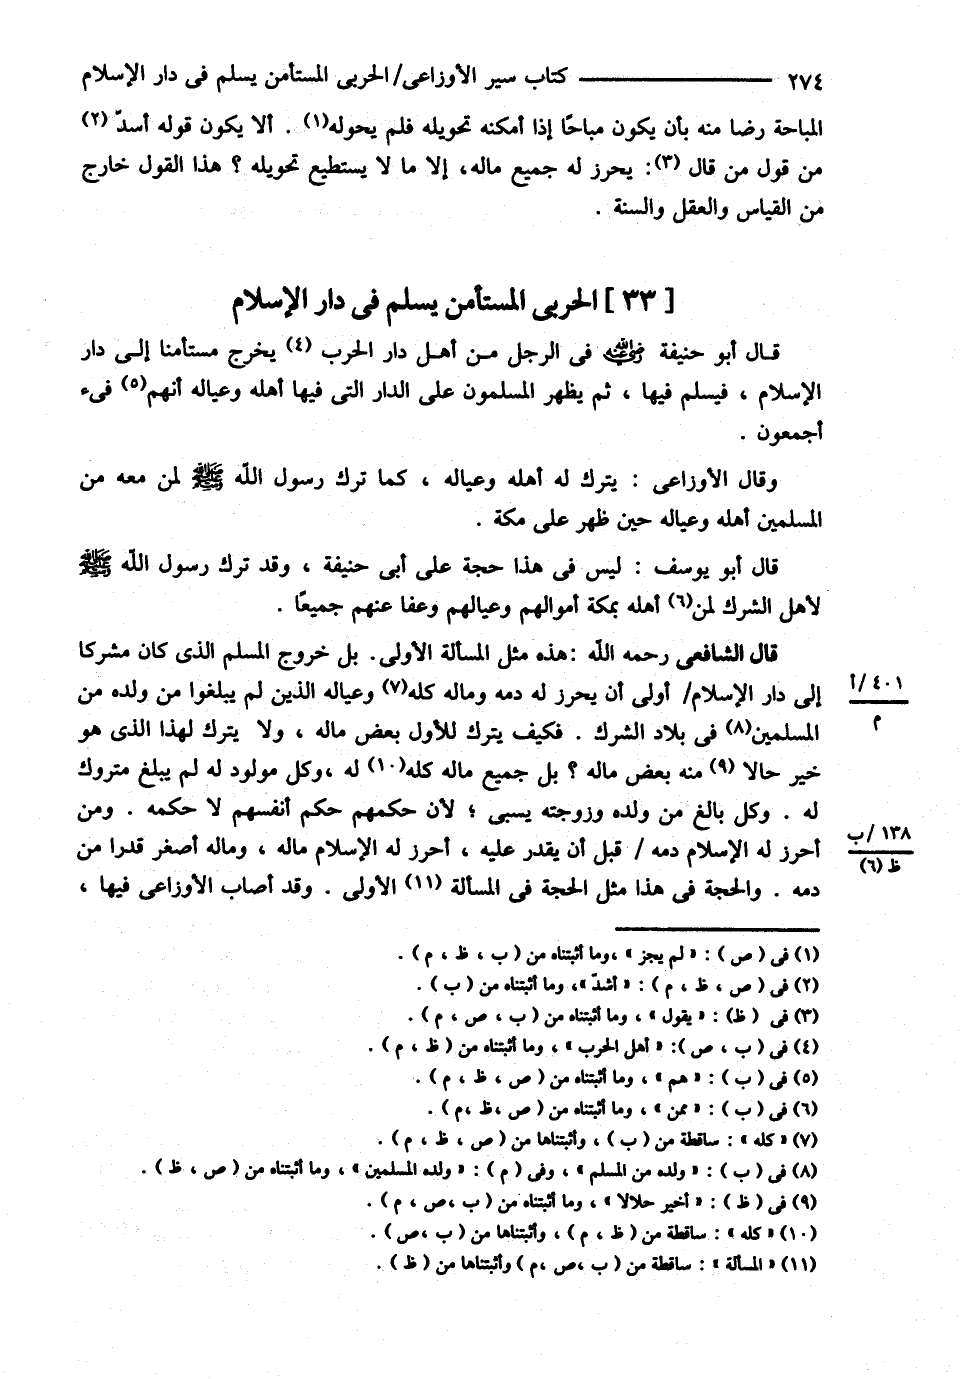 ٢٧٤ ـــــــــــــ كتاب سير الأوزاعى/ الحربى المستأمن يسلم فى دار الإسلام
المباحة رضا منه بأن يكون مباحًا إذا أمكنه تحويله فلم يحوله(١) . ألا يكون قوله أسدّ(٢)
من قول من قال (٣): يحرز له جميع ماله، إلا ما لا يستطيع تحويله ؟ هذا القول خارج
من القياس والعقل والسنة .
[ ٣٣ ] الحربى المستأمن يسلم فى دار الإسلام
قال أبو حنيفة رضي الله عنه فى الرجل من أهل دار الحرب (٤) يخرج مستأمنا إلى دار
الإسلام ، فيسلم فيها ، ثم يظهر المسلمون على الدار التى فيها أهله وعياله أنهم(٥) فىء
أجمعون .
وقال الأوزاعى : يترك له أهله وعياله ، كما ترك رسول اللّه ﷺ لمن معه من
المسلمين أهله وعياله حين ظهر على مكة .
قال أبو يوسف : ليس فى هذا حجة على أبى حنيفة ، وقد ترك رسول اللّه ﷺ
لأهل الشرك لمن(٦) أهله بمكة أموالهم وعيالهم وعفا عنهم جميعًا .
قال الشافعى رحمه اللّه :هذه مثل المسألة الأولى. بل خروج المسلم الذى كان مشركا
إلى دار الإسلام/ أولى أن يحرز له دمه وماله كله(٧) وعياله الذين لم يبلغوا من ولده من
٤٠١/أ
م
المسلمين(٨) فى بلاد الشرك . فكيف يترك للأول بعض ماله ، ولا يترك لهذا الذى هو
خير حالا (٩) منه بعض ماله ؟ بل جميع ماله كله(١٠) له ،وكل مولود له لم يبلغ متروك
له . وكل بالغ من ولده وزوجته يسبى ؛ لأن حكمهم حكم أنفسهم لا حكمه . ومن
أحرز له الإسلام دمه / قبل أن يقدر عليه ، أحرز له الإسلام ماله ، وماله أصغر قدرا من
١٣٨/ب
ظ (٦)
دمه . والحجة فى هذا مثل الحجة فى المسألة (١١) الأولى . وقد أصاب الأوزاعى فيها ،
(١) فى ( ص ) : « لم يجز » ،وما أثبتناه من ( ب ، ظ ، م ) .
(٢) فى ( ص ، ظ ، م ) : « أشدّ »، وما أثبتناه من ( ب ) .
(٣) فى ( ظ) : « يقول » ، وما أثبتناه من ( ب ، ص ، م ) .
(٤) فى ( ب ، ص ): « أهل الحرب » ، وما أثبتناه من ( ظ ، م ) .
(٥) فى ( ب ) : « هم » ، وما أثبتناه من ( ص ، ظ ، م ) .
(٦) فى ( ب ) : « ممن » ، وما أثبتناه من ( ص ،ظ ،م ) .
(٧) « كله » : ساقطة من ( ب ) ، وأثبتناها من ( ص ، ظ ، م ) .
(٨) فى ( ب ) : « ولده من المسلم » ، وفى ( م ) : « ولده المسلمين » ، وما أثبتناه من ( ص ، ظ ) .
(٩) فى ( ظ ) : « أخير حلالا » ، وما أثبتناه من ( ب ،ص ، م ) .
(١٠) « كله » : ساقطة من ( ظ ، م ) ، وأثبتناها من ( ب ،ص ) .
(١١) « المسألة » : ساقطة من ( ب ،ص ،م ) وأثبتناها من ( ظ ) .